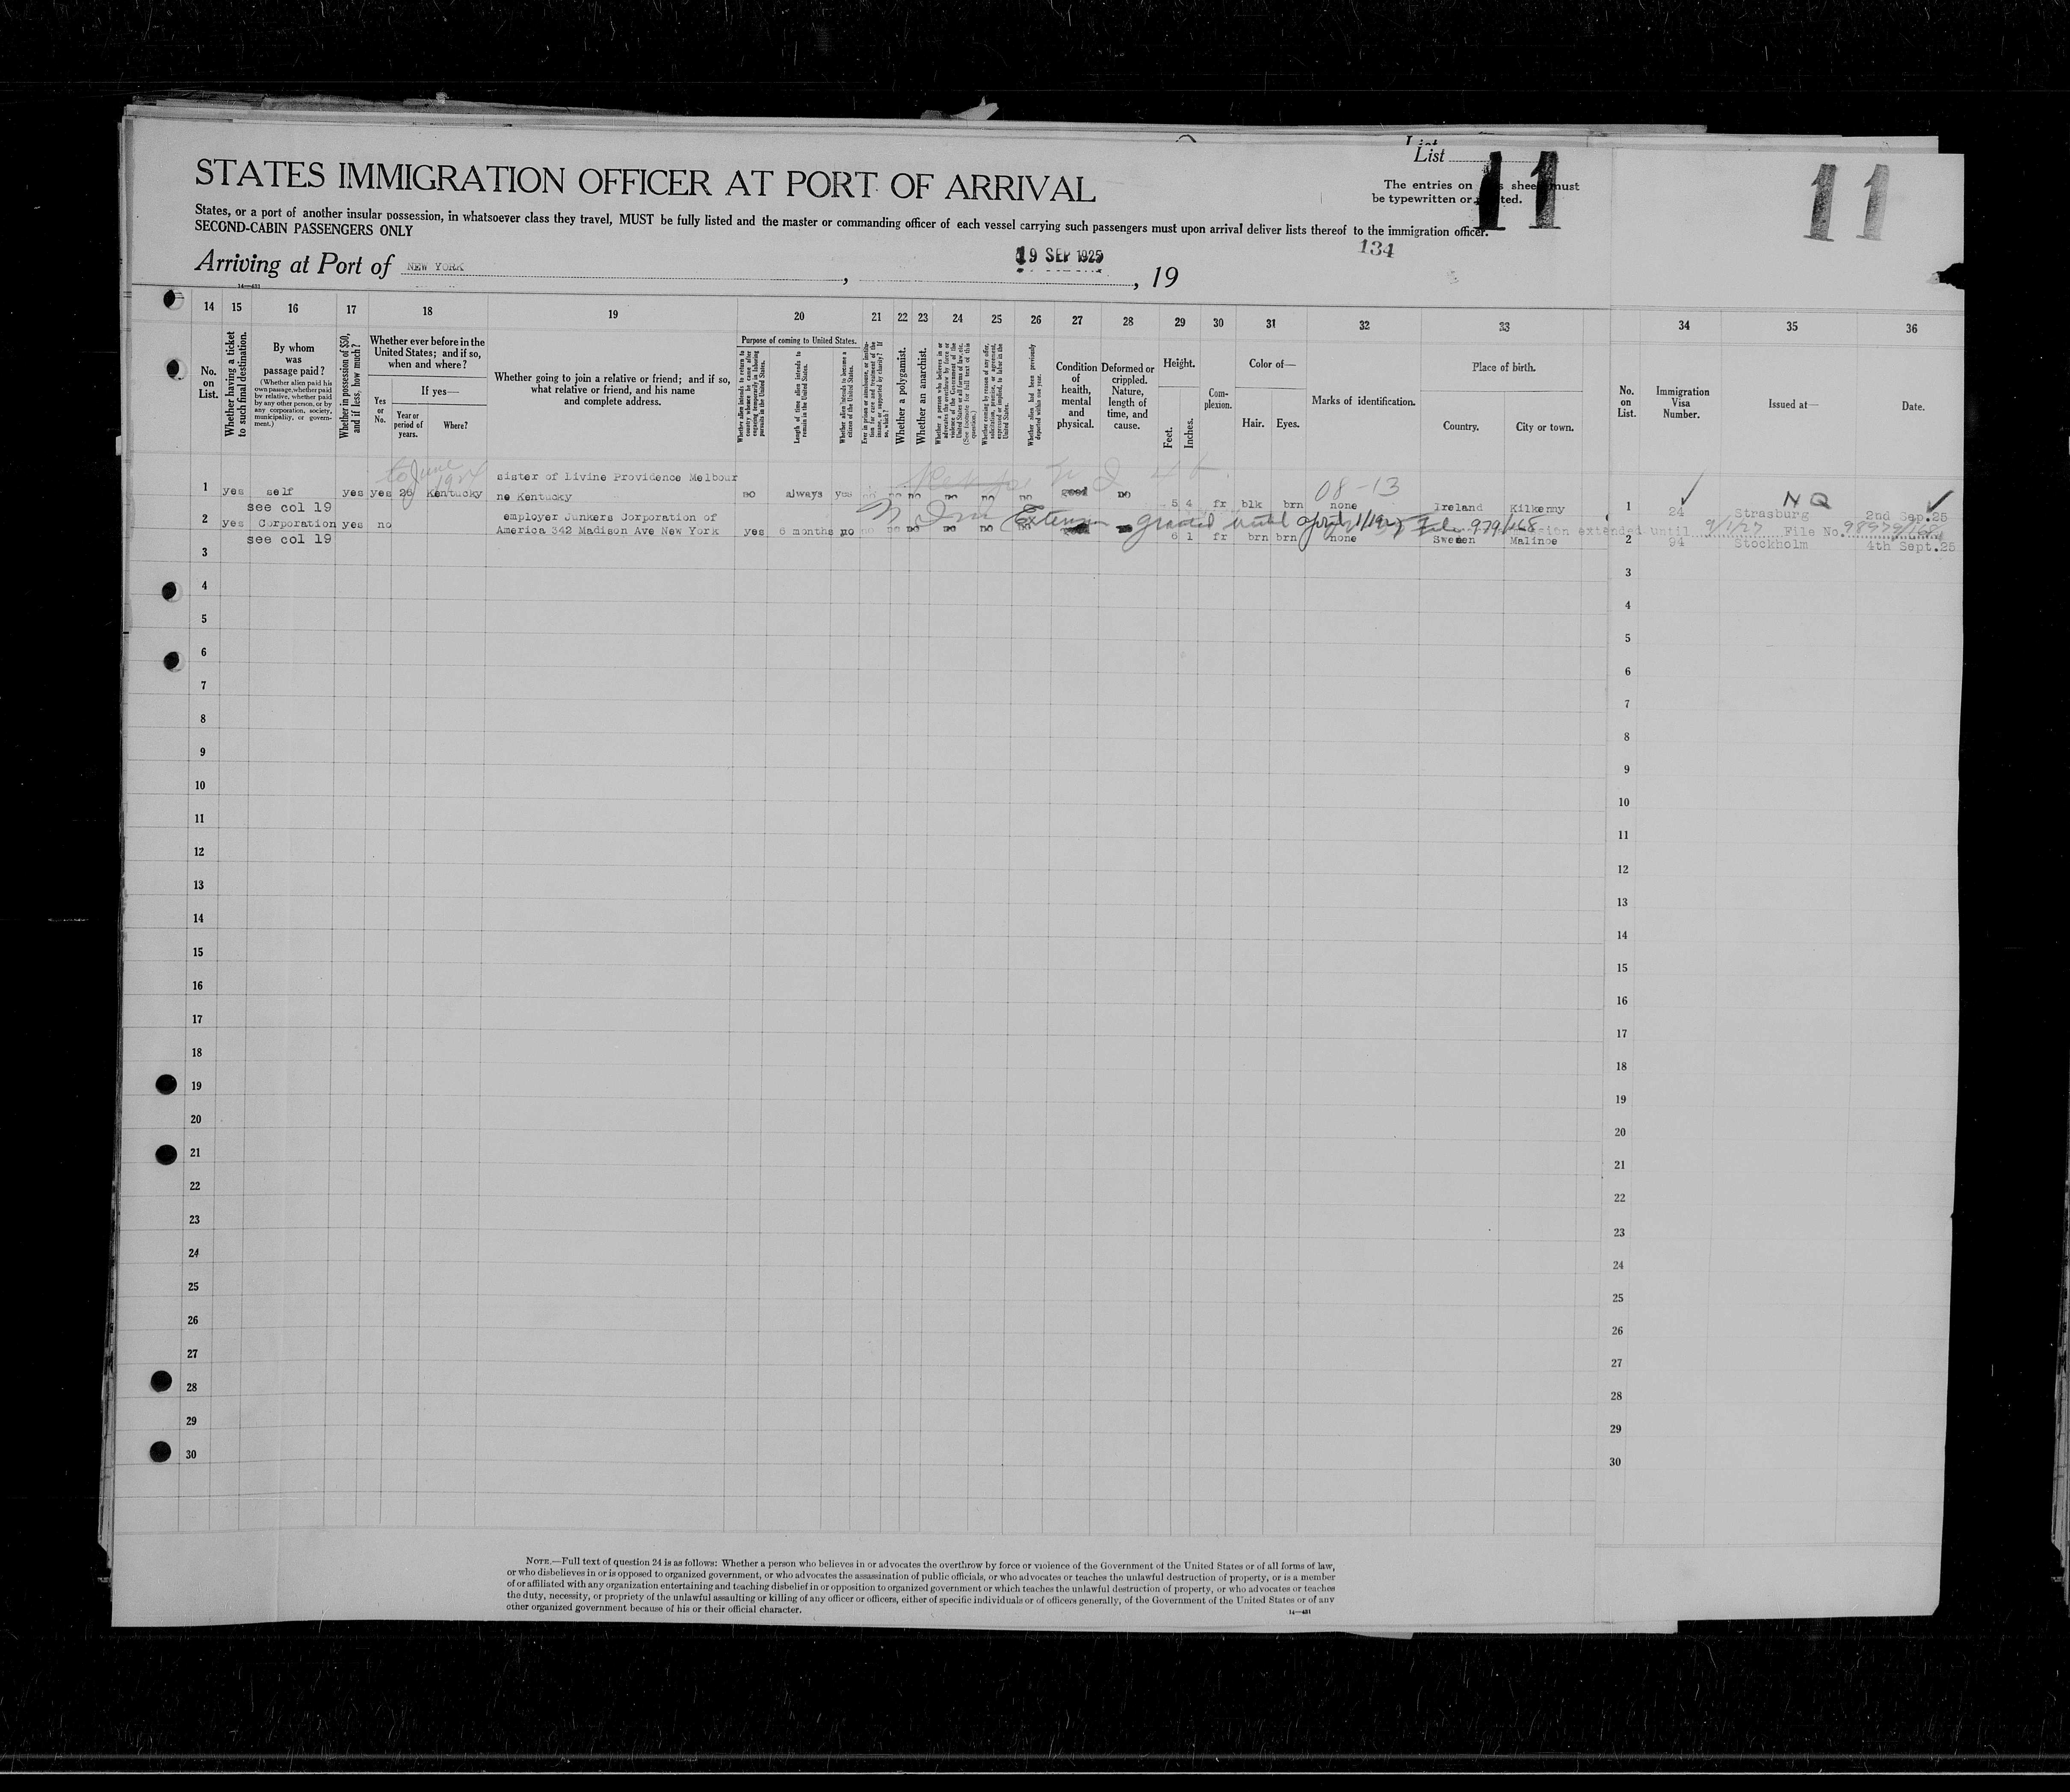 List 11 11
STATES IMMIGRATION OFFICER AT PORT OF ARRIVAL
The entries on sheet must
be typewritten or
States, or a port of another insular possession, in whatsoever class they travel, MUST be fully listed and the master or commanding officer of each vessel carrying such passengers must upon arrival deliver lists thereof to the immigration officer.
SECOND-CABIN PASSENGERS ONLY
134
Arriving at Port of NEW YORK, 19 SEP 1925, 19
14—431
14 15 16 17 18 19 20 21 22 23 24 25 26 27 28 29 30 31 32 33 34 35 36
No. on List.
Whether having a ticket to such final destination.
By whom was passage paid?
(Whether alien paid his own passage, whether paid by relative, whether paid by any other person, or by any corporation, society, municipality, or government.)
Whether in possession of $50, and if less, how much?
Whether ever before in the United States; and if so, when and where?
Yes or No.
If yes—
Year or period of years.
Where?
Whether going to join a relative or friend; and if so, what relative or friend, and his name and complete address.
Purpose of coming to United States.
Whether alien intends to return to country whence he came after engaging temporarily in laboring pursuits in the United States.
Length of time alien intends to remain in the United States.
Whether alien intends to become a citizen of the United States.
Ever in prison or almshouse, or institution for care and treatment of the insane, or supported by charity? If so, which?
Whether a polygamist.
Whether an anarchist.
Whether a person who believes in or advocates the overthrow by force or violence of the Government of the United States or all forms of law, etc. (See footnote for full text of this question.)
Whether coming by reason of any offer, solicitation, promise, or agreement, expressed or implied, to labor in the United States.
Whether alien had been previously deported within one year.
Condition of health, mental and physical.
Deformed or crippled. Nature, length of time, and cause.
Height.
Feet.
Inches.
Complexion.
Color of—
Hair.
Eyes.
Marks of identification.
Place of birth.
Country.
City or town.
No. on List.
Immigration Visa Number.
Issued at—
Date.
to June 1924
sister of Livine Providence Melbour
1 yes self yes yes 26 Kentucky ne Kentucky no always yes no no no no no no good no 5 4 fr blk brn 08-13 none Ireland Kilkenny 1 24 Strasburg NQ 2nd Sep.25
see col 19
employer Junkers Corporation of
2 yes Corporation yes no America 342 Madison Ave New York yes 6 months no no no no no no no 6 1 fr brn brn none Sweden Malinoe 2 94 Stockholm 4th Sept.25
Extension granted until April 1/1927 File 979/168
extended until 9/1/27 File No. 98979/168
see col 19
3 3
4 4
5 5
6 6
7 7
8 8
9 9
10 10
11 11
12 12
13 13
14 14
15 15
16 16
17 17
18 18
19 19
20 20
21 21
22 22
23 23
24 24
25 25
26 26
27 27
28 28
29 29
30 30
NOTE.—Full text of question 24 is as follows: Whether a person who believes in or advocates the overthrow by force or violence of the Government of the United States or of all forms of law,
or who disbelieves in or is opposed to organized government, or who advocates the assassination of public officials, or who advocates or teaches the unlawful destruction of property, or is a member
of or affiliated with any organization entertaining and teaching disbelief in or opposition to organized government or which teaches the unlawful destruction of property, or who advocates or teaches
the duty, necessity, or propriety of the unlawful assaulting or killing of any officer or officers, either of specific individuals or of officers generally, of the Government of the United States or of any
other organized government because of his or their official character.
14—431